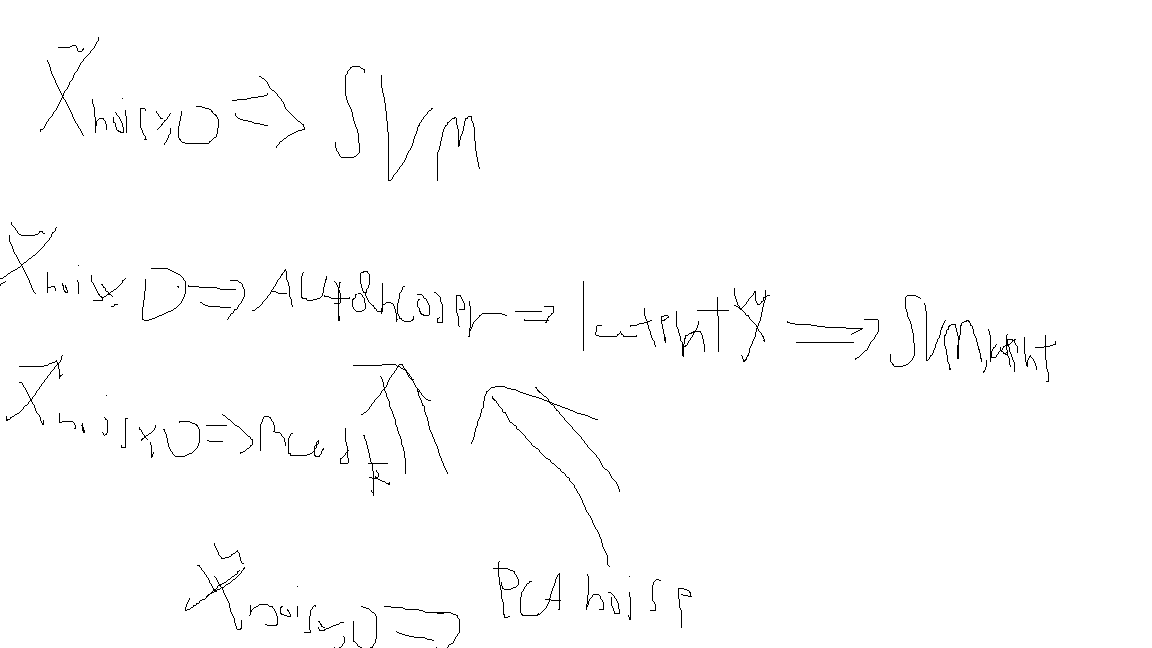 X̃noisy,D ⇒ SVM
X̃noisy D ⇒ Autoencoder ⇒ latent X̃ ⇒ SVM,latent
X̃noisy,D ⇒
X̃noisy,D ⇒ PCA noise